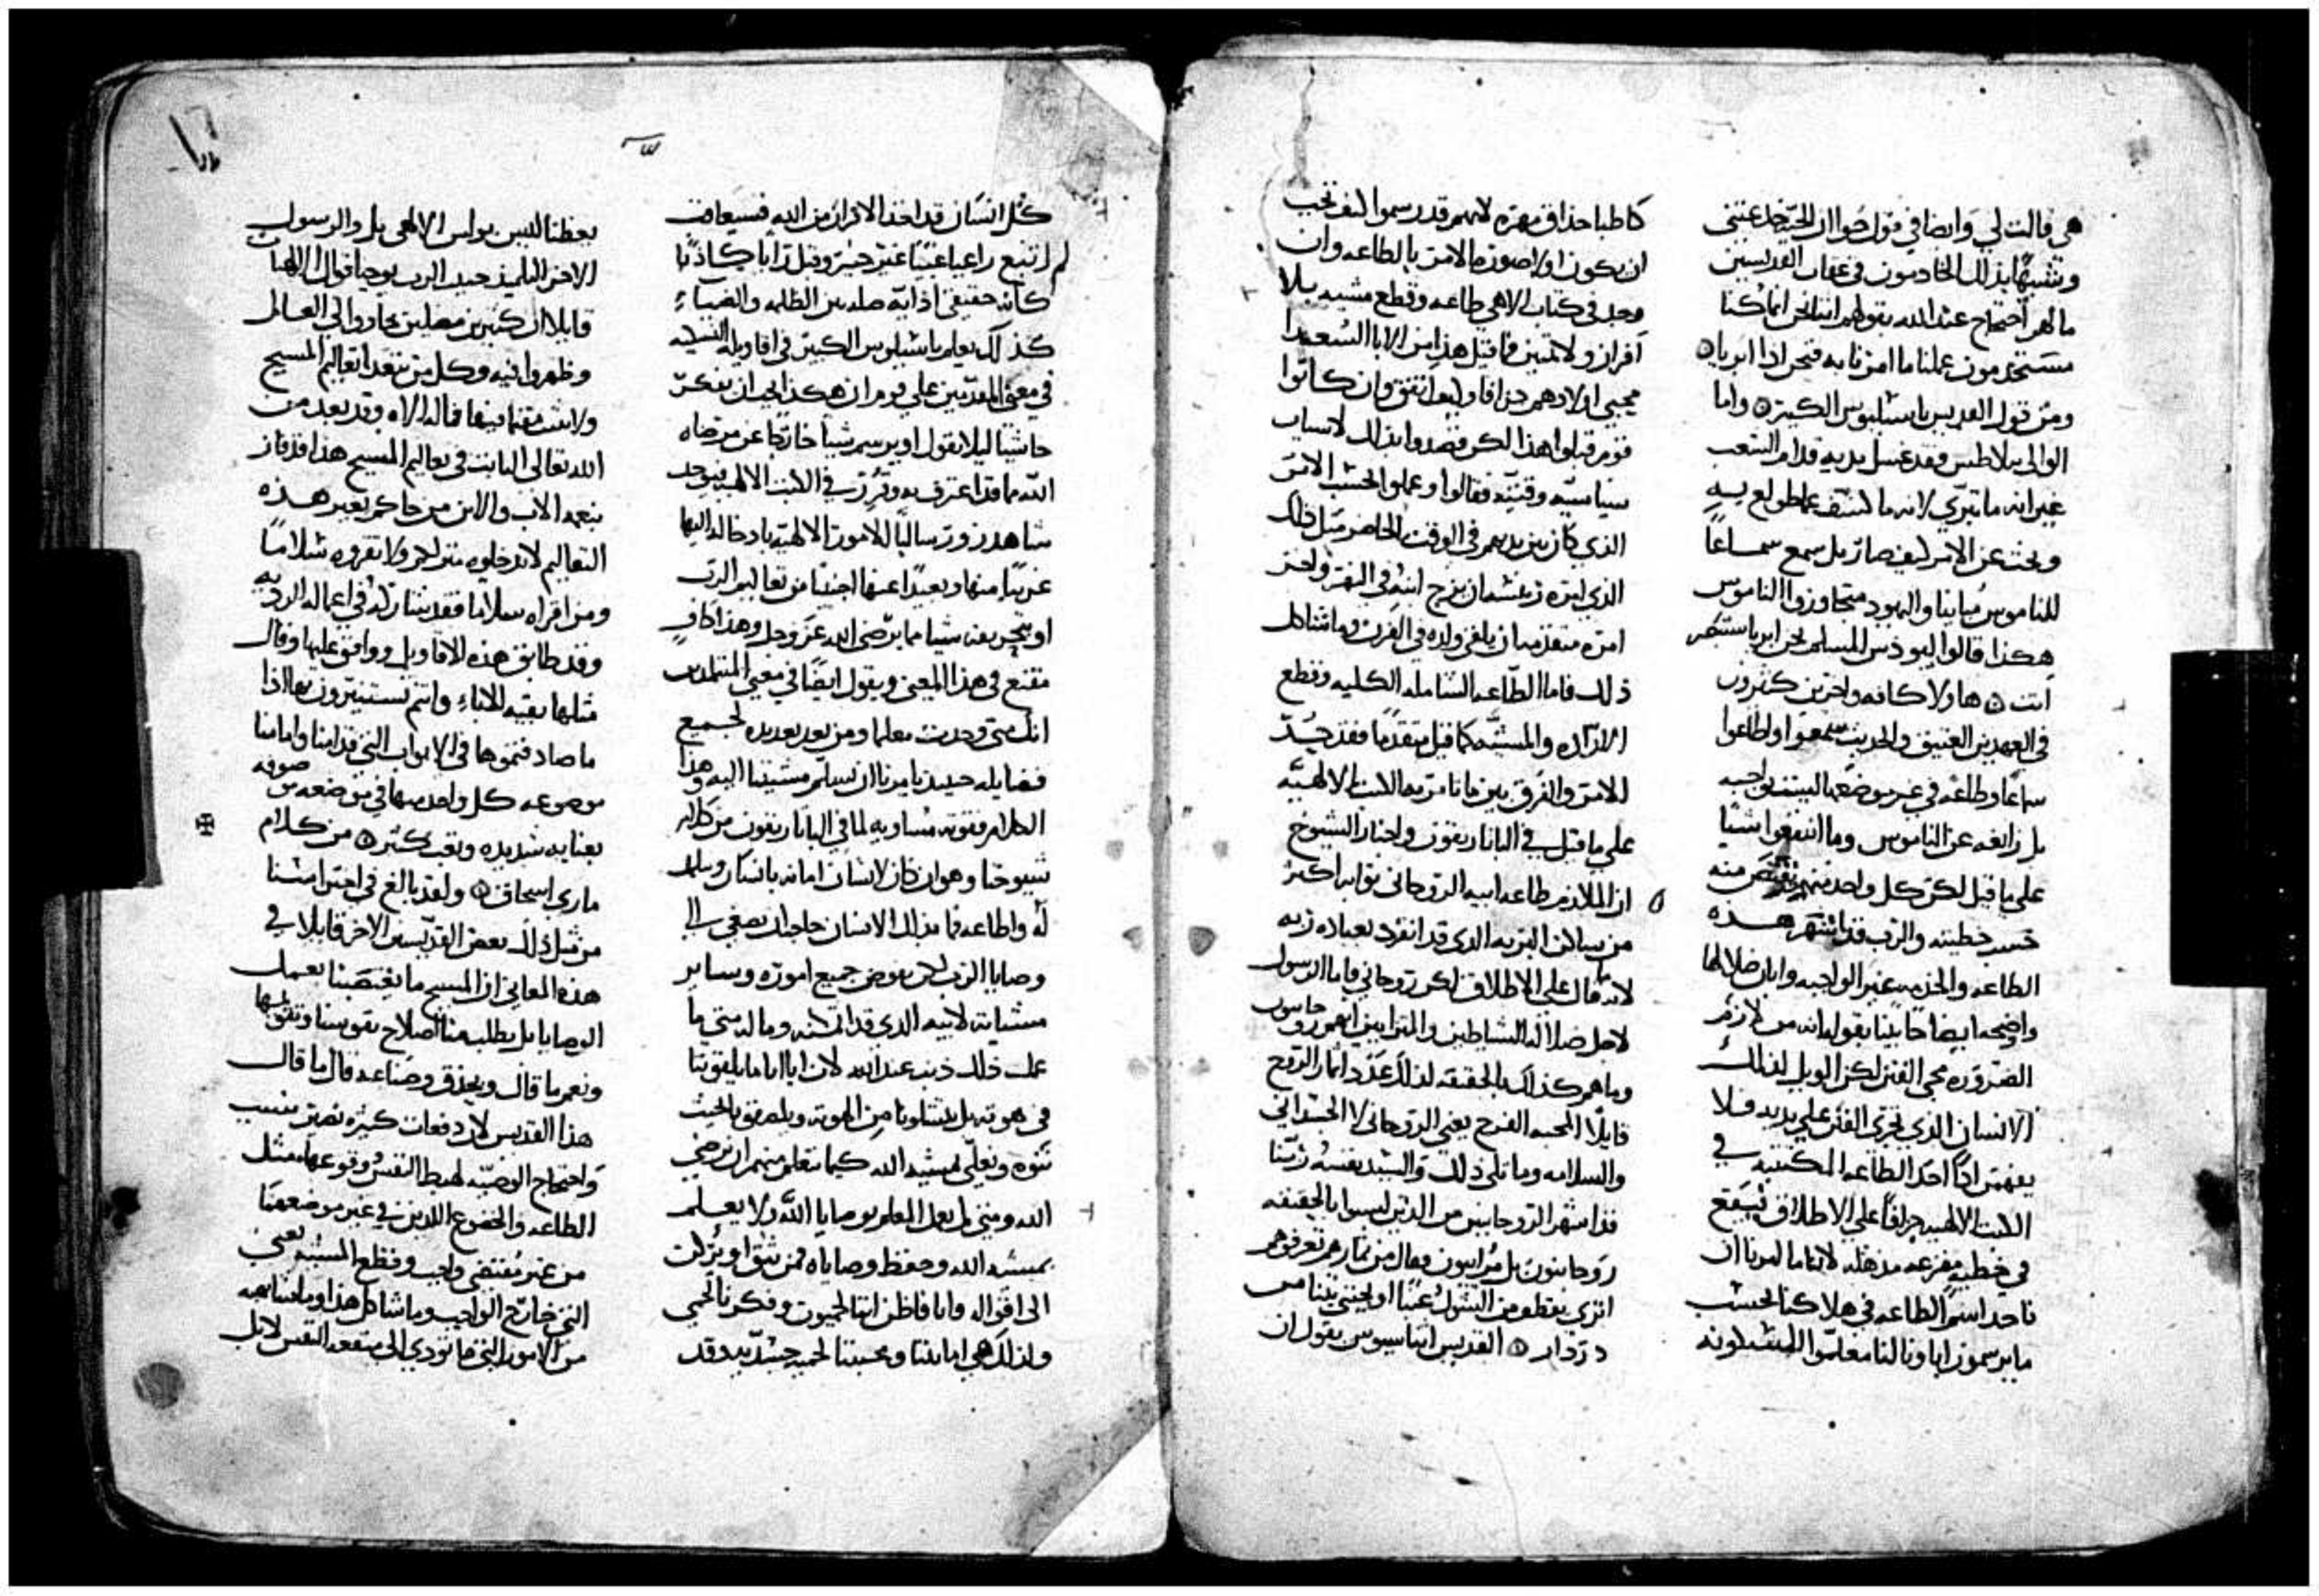 هي قالت لي وايضا في قول حوا ان الحيه خدعتني
وتشبها بذلك الخادمون في عقاب القديسين
ما لهم احتجاج عند الله بقولهم اننا نحن انما كنا
مستخدمون عملنا ما امرنا به فنحن اذا ابريا ۞
ومن قول القديس باسيليوس الكبير ۞ واما
الوالي بيلاطس فقد غسل يديه قدام الشعب
غير انه ما تبري لانه ما كشف عما طولع به
وبحث عن الامر كيف صار بل سمع سماعا
للناموس مباينا واليهود متجاوزوا الناموس
هكذا قالوا ليوذس المسلم نحن ابريا ستبصر
انت ۞ هاولا كافه واخرين كثيرون
في العهدين العتيق والحديث سمعوا واطاعوا
سماعا وطاعه في غير موضعها ليست بواجبه
بل زايغه عن الناموس وما انتفعوا شيا
علي ما قيل لكن كل واحد منهم يقتص منه
حسب خطيته والرب قد اشهر هذه
الطاعه والخدمه غير الواجبه وابان ضلالها
واضحه ايضا خابينا بقوله انه من لازم
الضروره مجي الفتن لكن الويل لذلك
الانسان الذي تجري الفتن علي يديه فلا
يفهمن اذا احد الطاعه المكتتبه في
الكتب الالهيه جزافا علي الاطلاق فيقع
في خطيه مفزعه مذهله لاننا ما امرنا ان
ناخد اسم الطاعه في هلاكنا لحسب
ما يرسمون اباونا لنا معلموا المسكونه
كاطبا حذاق مهره لانهم قد رسموا كيف تجب
ان يكون اولا صوره الامر بالطاعه وان
وجد في كتاب الاهي طاعه وقطع مشيه بلا
افراز ولا تمييز فما قيل هذا من الابا السعدا
محبي اولادهم جزافا وكيف اتفق وان كانوا
قوم قبلوا هذا لكن قصدوا بذلك لاسباب
سياسيه وقتيه فقالوا وعملوا بحسب الامر
الذي كان يزيدهم في الوقت الحاضر مثل ذلك
الذي امره ان يزج ابنه في النهر واخر
امره متقدمه ان يلقي ولده في الفرن وما شاكل
ذلك فاما الطاعه الشامله الكليه وقطع
الاراده والمشيه كما قيل متقدما فقد حدد
الامر والفرق بين ما نامر به الكتب الالهيه
علي ما قيل في الباناريقون واخبار الشيوخ
ان الملازم طاعه ابيه الروحاني ثوابه اكثر
من ساكن البريه الذي قد انفرد بعباده ربه
لانه ما قال علي الاطلاق لكن روحاني فاما الرسول
لاجل ضلاله الشياطين والمرايين انهم روحانيون
وما هم كذلك بالحقيقه لذلك عدد اثمار الروح
قايلا المحبه الفرح يعني الروحاني لا الجسداني
والسلامه وما تلي ذلك والسيد نفسه ربنا
قد اشهر الروحانيين من الذين ليسوا بالحقيقه
روحانيون بل مراييون وقال من ثمارهم تعرفوهم
اتري يقطع من الشوك عنبا او يجتني تينا من
دردار ۞ القديس اتناسيوس يقول ان
كل انسان قد اخذ الافراز من الله فسيعاقب
ان اتبع راعيا غبيا غير خبير وقبل رايا كاذبا
كانه حقيقي اذ ايه صله بين الظلمه والضياء
كذلك يعلم باسيليوس الكبير في اقاويله النسكيه
في معني المقدمين علي قوم ان هكذا يجب ان يفتكر
خاشيا ليلا يقول او يرسم شيا خارجا عن مرضاه
الله مما قد اعترف به وقرر في الكتب الالهيه فيوجد
شاهد زور وسالبا للامور الالهيه بادخاله اليها
غريبا منها وبعيدا عنها اجنبيا من تعاليم الرب
او يتجريفه شيا مما يرضي الله عز وجل وهذا كاف
مقنع في هذا المعني ويقول ايضا في معني المتتلمدين
انك متي وجدت معلما ومن بعد تعديده لجميع
فضايله حينيذ يامرنا ان نسلم مشيتنا اليه وهذا
الكلام فقوته مساويه لما في الباناريقون من كلام
شيوخنا وهو ان كان لانسان امانه بانسان وسلم
له واطاعه فما بذلك الانسان حاجه ان يصغي الي
وصايا الرب لكن يفوض جميع اموره وساير
مشياته لابيه الذي قد ائتمنه وما له متي ما
عمل ذلك ذنب عند الله لان ابانا ما يلقونا
في هوته بل ينتشلونا من الهوته ويلصقونا بحيث
نتوه ونعلي لمشيه الله كيما نتعلم منهم ان نرضي
الله ومتي لم يعمل المعلم بوصايا الله ولا يعلم
بمشيه الله وحفظ وصاياه فمن يثق او يركن
الي اقواله وانا فاظن انتا لحميون وفكرنا لحمي
ولذلك هي امانتنا ومحبتنا لحميه جسديه وقد
يعظنا ليس بولس الالهي بل والرسول
الاخر التلميذ حبيب الرب يوحنا قوال الالهيات
قايلا ان كثيرين مضلين جاووا الي العالم
وظهروا فيه وكل من تعدا تعاليم المسيح
ولا يثبت مقيما فيها فما له الاه وقد بعد من
الله تعالي الثابت في تعاليم المسيح هذا قد فاز
بنعمه الاب والابن من جاكم بغير هذه
التعاليم لا تدخلوه منزلكم ولا تقروه سلاما
ومن اقراه سلاما فقد شاركه في اعماله الرديه
وقد طابق هذه الاقاويل ووافق عليها وقال
مثلها بقيه الاباء وانتم تستنيرون بها اذا
ما صادفتموها في الابواب التي قدامنا وامامنا
موضوعه كل واحد منها في موضعه موصوفه
بعنايه شديده وتعب كثير ۞ من كلام
ماري اسحاق ۞ ولقد بالغ في احترامنا
من مثل ذلك بعض القديسين الاخر قايلا في
هذه المعاني ان المسيح ما يغصبنا بعمل
الوصايا بل يطلب منا اصلاح نفوسنا وتقويمها
ونعم ما قال وبحذق وصناعه قال ما قال
هذا القديس لان دفعات كثيره تصير بسبب
واحتجاج الوصيه لهبط النفس وقوعها مثل
الطاعه والخضوع اللذين في غير موضعهما
من غير مقتضي واجب وقطع المشيه يعني
التي خارج الواجب وما شاكل هذا وما شابهه
من الامور التي ما تودي الي منفعه النفس لا بل